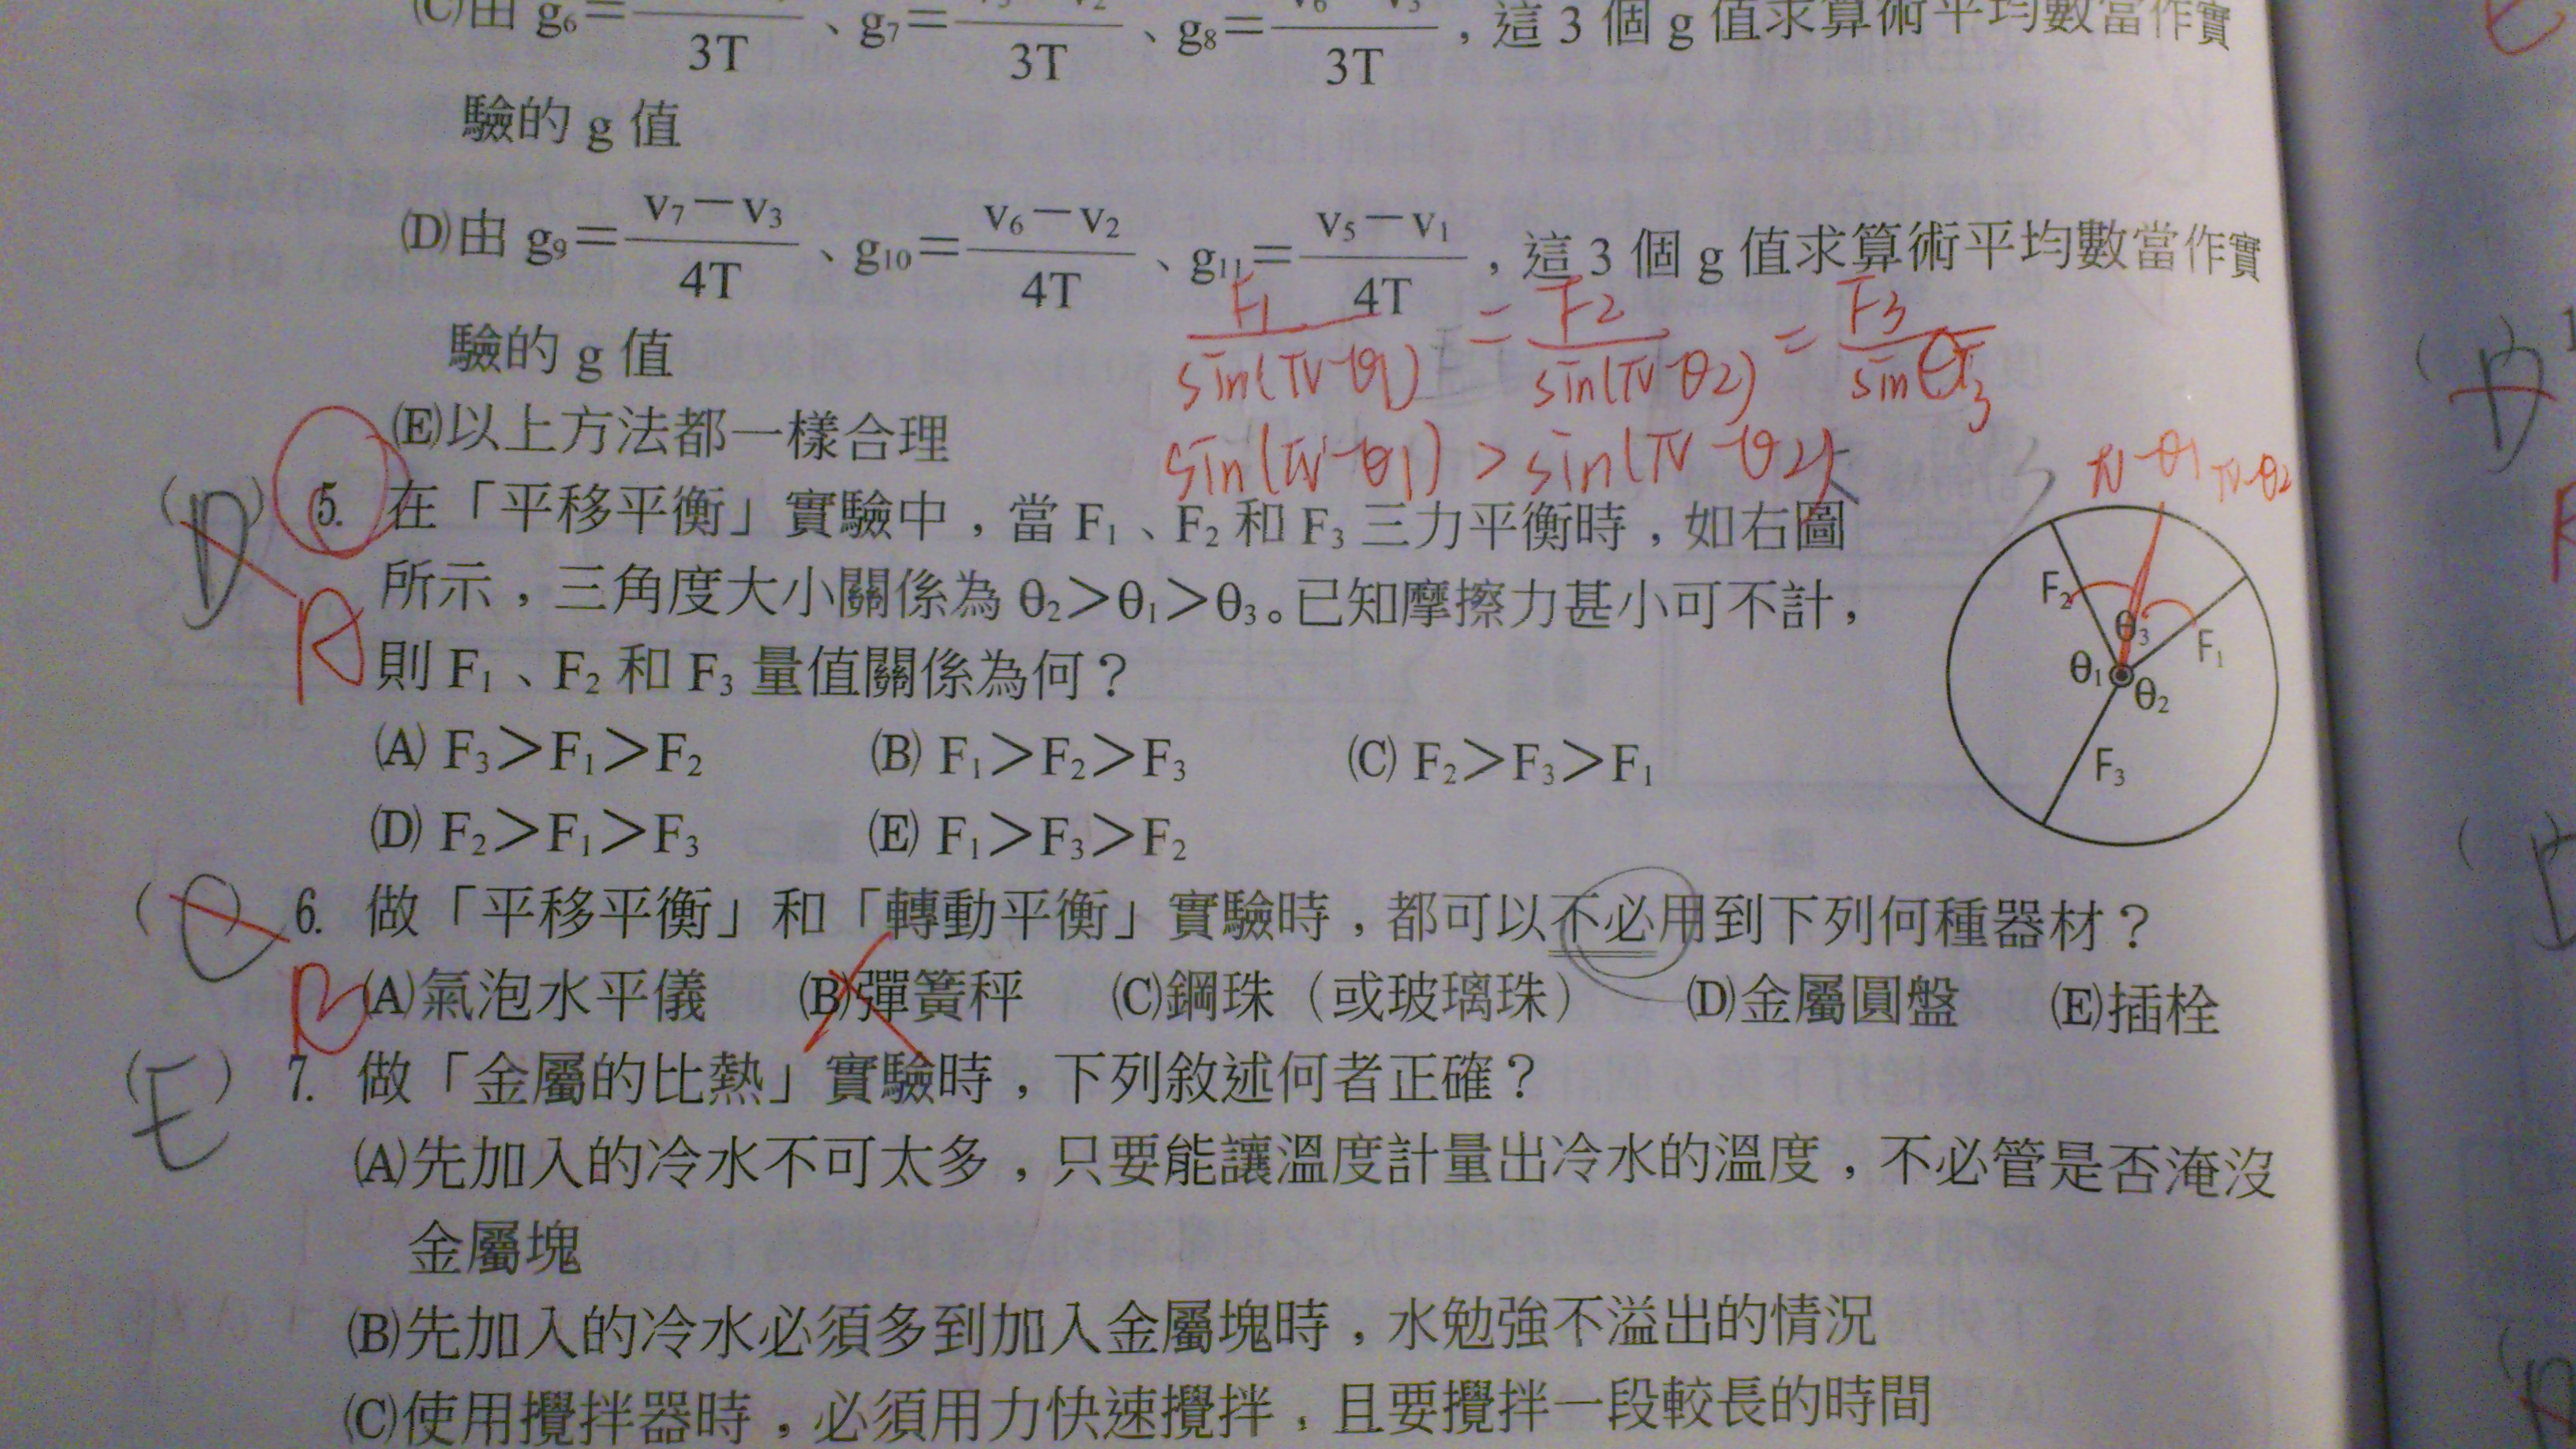 (C)由 g₆＝ /3T、g₇＝ /3T、g₈＝ /3T，這3個g值求算術平均數當作實
驗的g值
(D)由 g₉＝(v₇－v₃)/4T、g₁₀＝(v₆－v₂)/4T、g₁₁＝(v₅－v₁)/4T，這3個g值求算術平均數當作實
驗的g值
F1/sin(π-θ1) = F2/sin(π-θ2) = F3/sinθ3
(E)以上方法都一樣合理
sin(π-θ1) > sin(π-θ2)
π-θ1 π-θ2
(D) 5. 在「平移平衡」實驗中，當F₁、F₂和F₃三力平衡時，如右圖
所示，三角度大小關係為θ₂＞θ₁＞θ₃。已知摩擦力甚小可不計，
A
則F₁、F₂和F₃量值關係為何？
F₂ θ₃ F₁
θ₁ θ₂
F₃
(A) F₃＞F₁＞F₂ (B) F₁＞F₂＞F₃ (C) F₂＞F₃＞F₁
(D) F₂＞F₁＞F₃ (E) F₁＞F₃＞F₂
(C) 6. 做「平移平衡」和「轉動平衡」實驗時，都可以不必用到下列何種器材？
B (A)氣泡水平儀 (B)彈簧秤 (C)鋼珠（或玻璃珠） (D)金屬圓盤 (E)插栓
(E) 7. 做「金屬的比熱」實驗時，下列敘述何者正確？
(A)先加入的冷水不可太多，只要能讓溫度計量出冷水的溫度，不必管是否淹沒
金屬塊
(B)先加入的冷水必須多到加入金屬塊時，水勉強不溢出的情況
(C)使用攪拌器時，必須用力快速攪拌，且要攪拌一段較長的時間